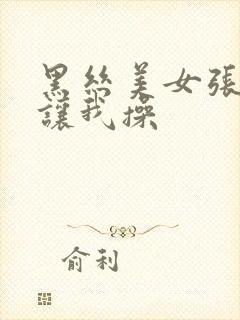 黑丝美女張
讓我操
俞利